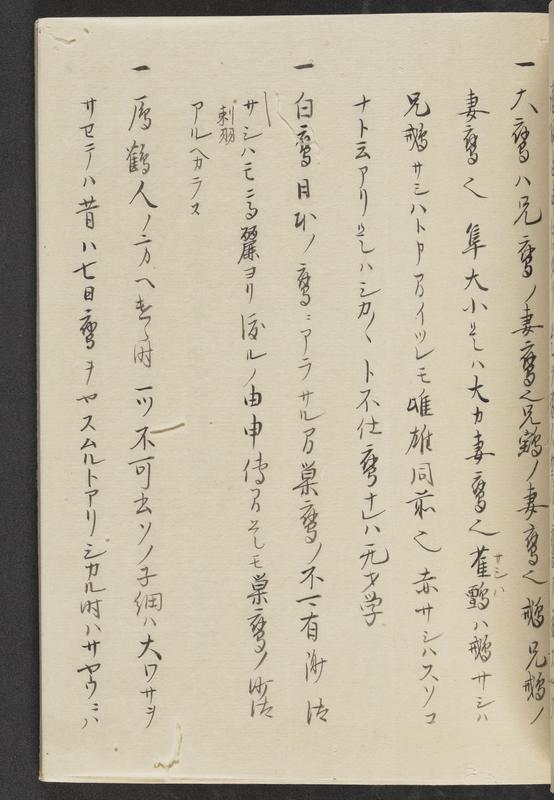 一大鷹ハ兄鷹ノ妻鷹也兄鷂ノ妻鷹也鵊兄鵊ノ
妻鷹也 隼大小是ハ大カ妻鷹也雀ハ鵊サシハ
サシハ
兄鵊サシハト申間イツレモ雌雄同前也 赤サシハスソコ
ナト云アリ是ハシカ〱ト不仕鷹ナレハ无才学
一 白鷹日本ノ鷹ニアラサル間巣鷹ノ不可有沙法
サシハモ高麗ヨリ渡ルノ由申傳間是モ巣鷹ノ沙法
刺羽
アルヘカラス
一 鴈鶴人ノ方ヘ遣時一ツ不可出ソノ子細ハ大ワサヲ
サセテハ昔ハ七日鷹ヲヤスムルトアリシカル時ハサヤウニハ